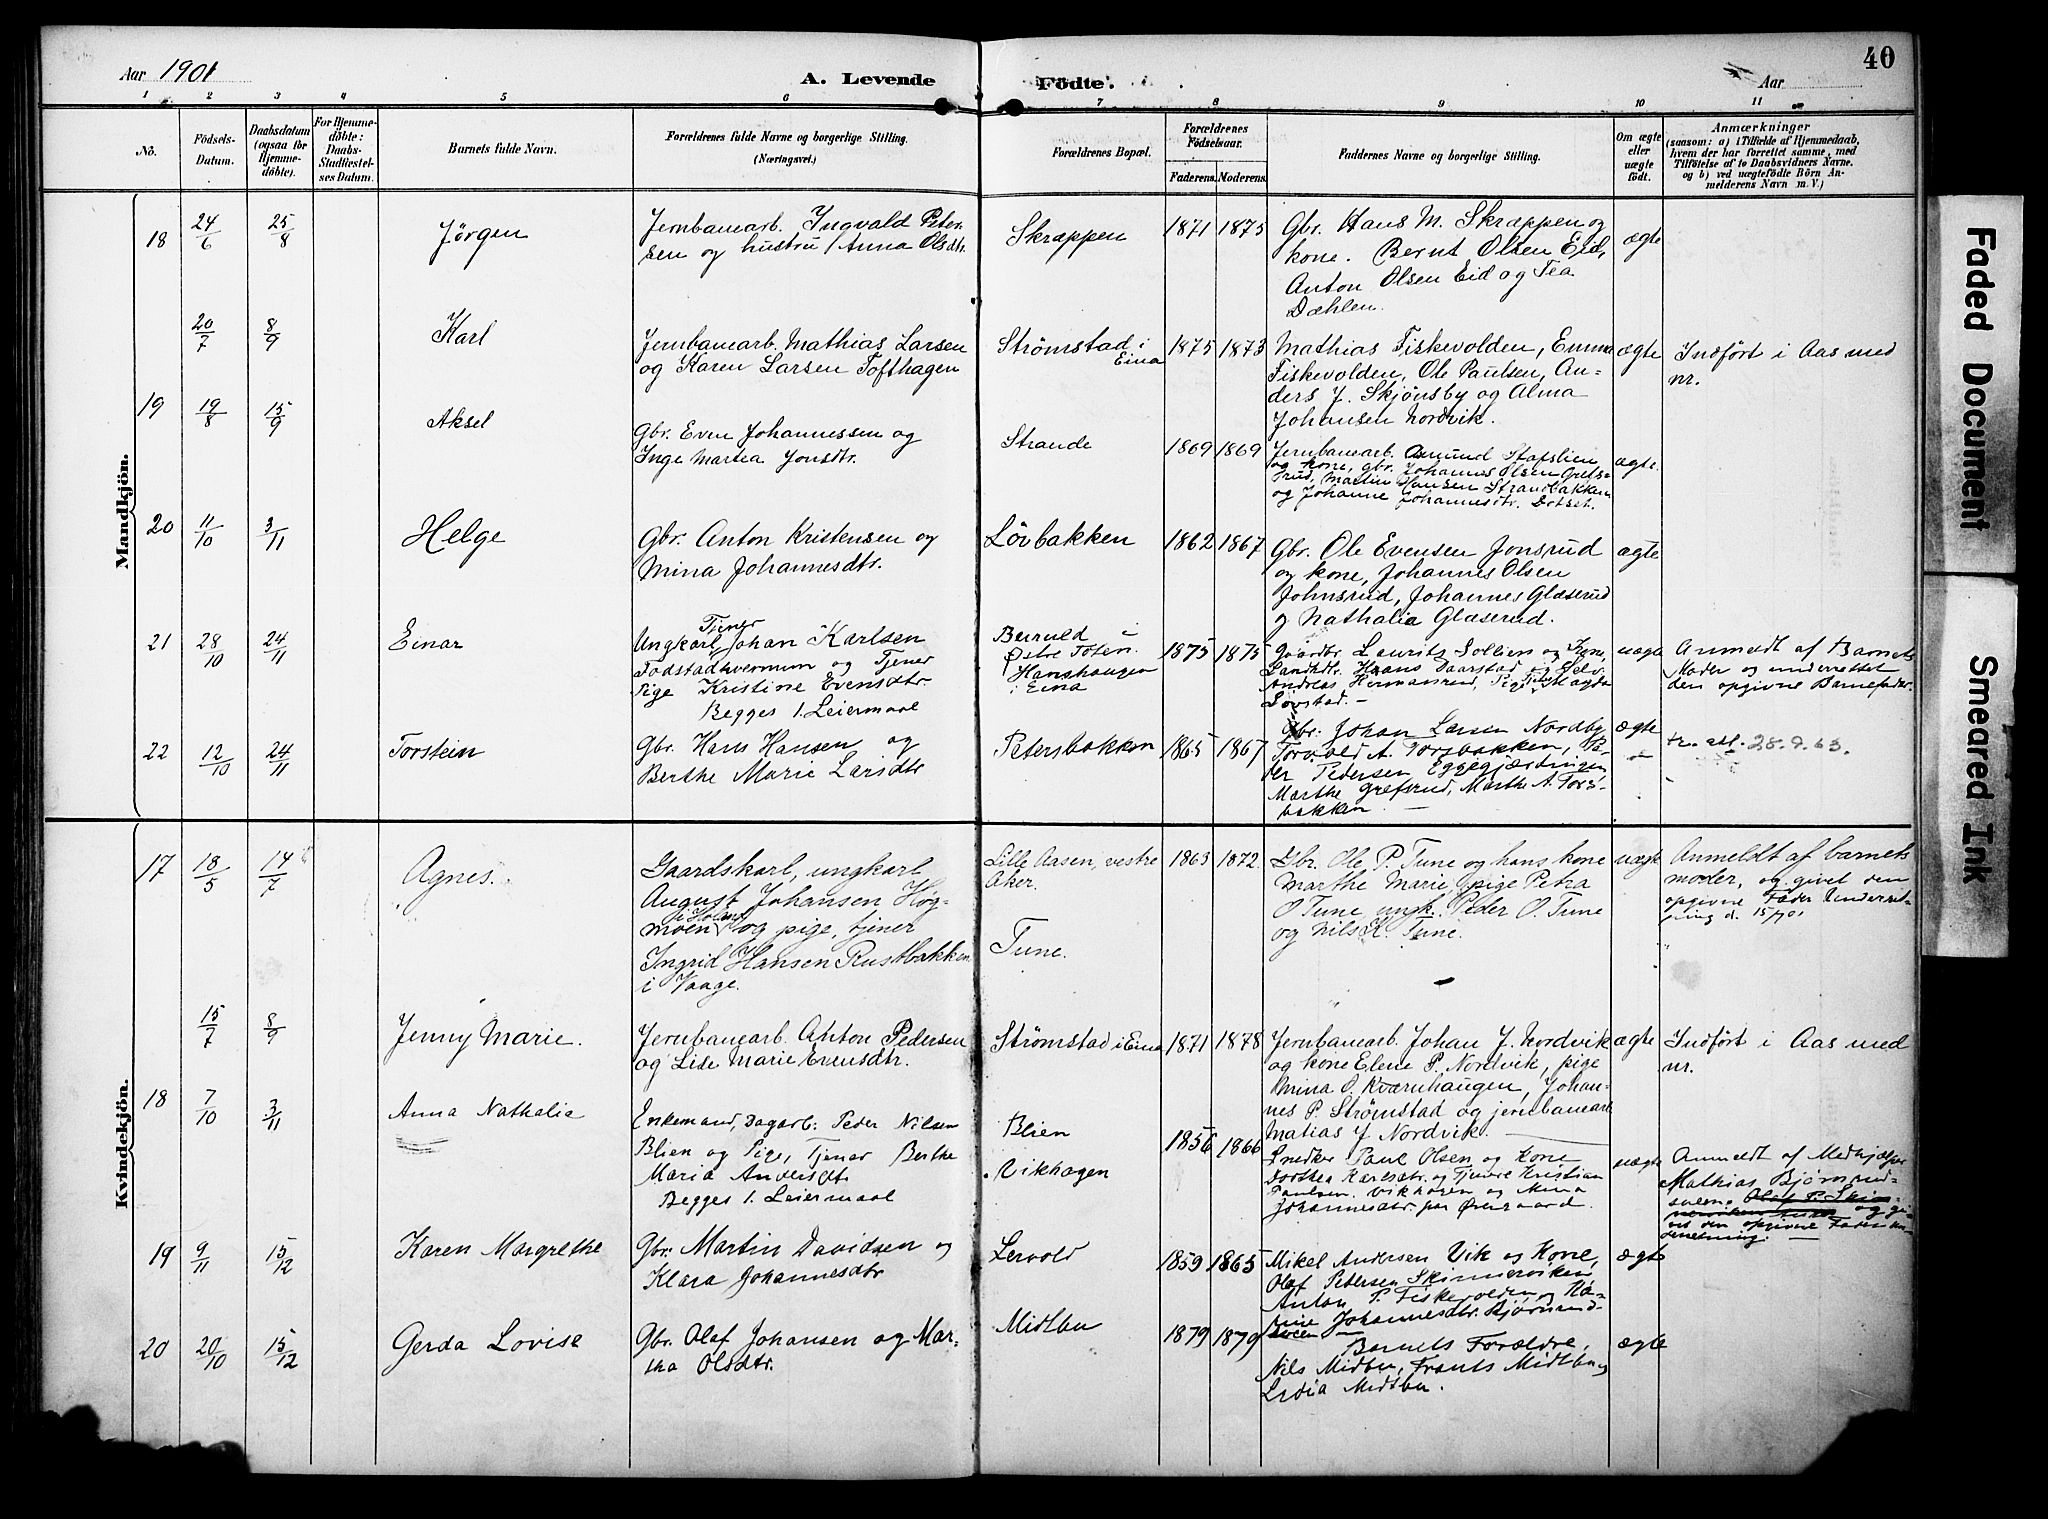 Aar 1901
A. Levende
Födte.
Aar
40
1
2
3
4
5
6
7
8
9
10
11
No.
Födsels-
Datum.
Daabsdatum
(ogsaa for
Hjemme-
døbte).
For Hjemme-
døbte:
Daabs-
Stadfæstel-
ses Datum.
Barnets fulde Navn.
Forældrenes fulde Navne og borgerlige Stilling.
(Næringsvei.)
Forældrenes Bopæl.
Forældrenes
Födselsaar.
Faderens.
Moderens.
Faddernes Navne og borgerlige Stilling.
Om ægte
eller
uægte
födt.
Anmærkninger
(saasom: a) i Tilfælde af Hjemmedaab,
hvem der har forrettet samme, med
Tilföielse af to Daabsvidners Navne.
og b) ved uægtefödte Börn An-
melderens Navn m. V.)
Mandkjön.
18
24/6
25/8
Jörgen
Jernbanearb. Ingvald Peter-
sen og hustru Anna Olsdtr.
Skræppen
1871
1875
Gbr. Hans M. Skræppen og
kone. Bernt Olsen Eid,
Anton Olsen Eid og Tea
Dæhlen.
ægte
20/7
8/9
Karl
Jernbanearb. Mathias Larsen
og Karen Larsen Tofthagen
Strømstad i
Eina
1875
1873
Mathias Fiskevolden, Emma
Fiskevolden, Ole Paulsen, An-
ders J. Skjönsby og Alma
Johansen Nordvik.
ægte
Indført i Aas med
nr.
19
19/8
15/9
Aksel
Gbr. Even Johannessen og
Inge Martea Jonsdtr.
Strande
1869
1869
Jernbanearb. Amund Stafslien
og kone, gbr. Johannes Olsen Grefs-
rud, Martin Hansen Strandbakken
og Johanne Johannesdtr.
ægte
20
11/10
3/11
Helge
Gbr. Anton Kristensen og
Mina Johannesdtr.
Lövbakken
1862
1867
Gbr. Ole Evensen Jonsrud
og kone, Johannes Olsen
Johnsrud, Johannes Glæserud
og Nathalia Glæserud.
ægte
21
28/10
24/11
Einar
Tjener
Ungkarl Johan Karlsen
og Tjener
Pige Kristine Evensdtr
Begges 1. Leiermaal
i
Østre Toten.
Hanshaugen
i Eina
1875
1875
Laurits Sollien og Kone,
Andreas Hermansrud, Pige Magda
uægte
Anmeldt af Barnets
Moder og underrettet
den opgivne Barnefader.
22
12/10
24/11
Torstein
Gbr. Hans Hansen og
Berthe Marie Larsdtr
Petersbakken
1865
1867
Gbr. Johan Larsen Nordby,
Torvald A. Torsbakken, Pe-
der Pedersen Eggegjærdingen,
Marthe Grefsrud, Marthe A. Tors-
bakken.
ægte
28.9.63.
Kvindekjön.
17
18/5
14/7
Agnes.
Gaardskarl, ungkarl
August Johansen Høg-
moen og pige, tjener
Ingrid Hansen Rustbakken
i Vaage.
Lille Aasen, vestre
Aker.
Tune.
1863
1872.
Gbr. Ole P. Tune og hans kone
Marthe Marie, pige Petra
O. Tune, ungk. Peder O. Tune
og Nils K. Tune.
uægte
Anmeldt af barnets
moder, og givet den
opgivne Fader Underret-
ning d. 15/7 01
15/7
8/9
Jenny Marie.
Jernbanearb. Anton Pedersen
og Lise Marie Evensdtr.
Strømstad i Eina
1871
1878
Jernbanearb. Johan J. Nordvik
og kone Elene P. Nordvik, pige
Mina O. Kværnhaugen, Johan-
nes P. Strømstad og jernbanearb.
Matias J. Nordvik.
ægte
Indført i Aas med
nr.
18
7/10
3/11
Anna Nathalia
Enkemand, Dagarb. Peder Nilsen
Blien og Pige, Tjener Berthe
Maria Andersdtr.
Begges 1. Leiermaal
Blien
Vikhagen
1856
1866
Snedker Paul Olsen og Kone
Dorthea Karlsdtr. og Tjener Kristian
Paulsen Vikhagen og Mina
Johannesdtr.
uægte
Anmeldt af Medhjælper
Mathias Bjørnerud-
og gi-
vet den opgivne Fader un-
derretning.
19
9/11
15/12
Karen Margrethe
Gbr. Martin Davidsen og
Klara Johannesdtr
Lervold
1859
1865
Mikel Andersen Vik og Kone,
Olaf Petersen Skinnerviken
Anton P. Fiskevolden og Ka-
rine Johannesdtr. Bjørnerud-
ægte
20
20/10
15/12
Gerda Lovise
Gbr. Olaf Johansen og Mar-
tha Olsdtr.
Midtbu
1879
1879
Barnets Forældre,
Nils Midtbu, Frants Midtbu og
Lydia Midtbu.
ægte
Faded Document
Smeared Ink